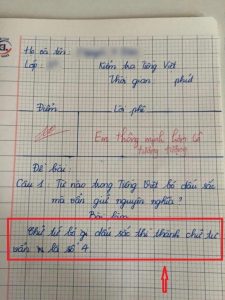 Họ và tên:
Lớp:
Kiểm tra Tiếng Việt
Thời gian phút
Điểm
Lời phê
Em thông minh hơn cô
tưởng tượng
Đề bài:
Câu 1: Từ nào trong Tiếng Việt bỏ dấu sắc
mà vẫn giữ nguyên nghĩa?
Bài làm
Chữ tứ bỏ dấu sắc thì thành chữ tư
vẫn là số 4